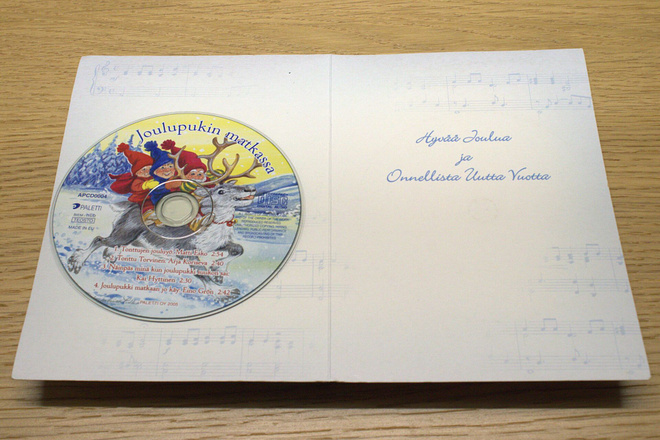 Joulupukin matkassa
APCD0004
PALETTI
MADE IN EU
1. Tonttujen jouluyö, Matti
2. Tonttu Torvinen, Arja Koriseva 2:40
3. niinä kun joulupukki
Kai Hyttinen 2:30
4. Joulupukki matkaan jo käy, Eino Grön 2:42
Hyvää Joulua
ja
Onnellista Uutta Vuotta